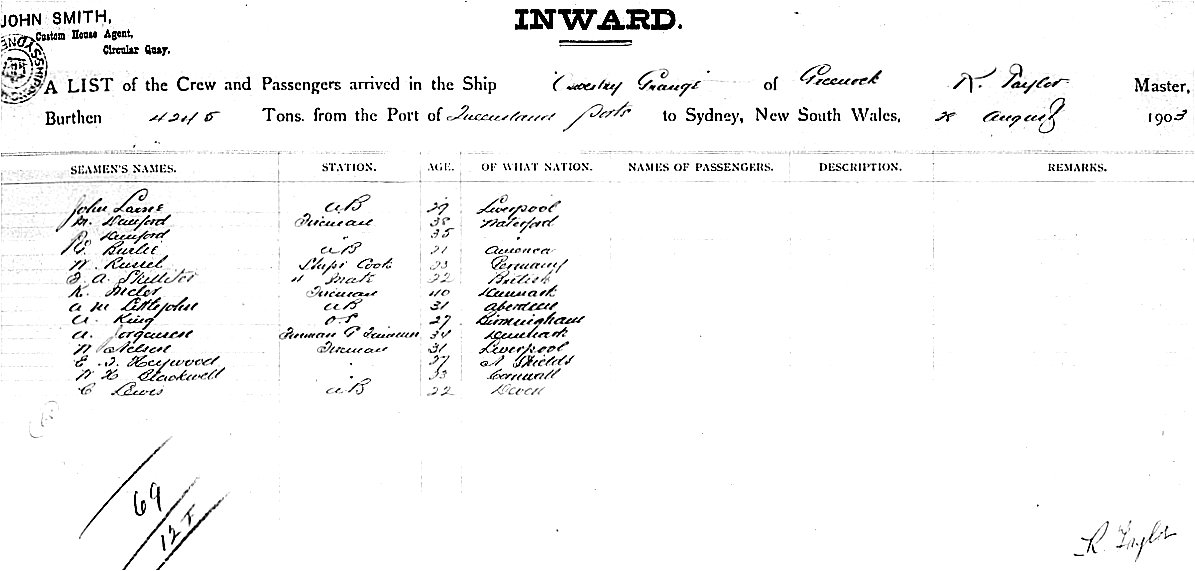 JOHN SMITH,
Custom House Agent,
Circular Quay.
INWARD.
A LIST of the Crew and Passengers arrived in the Ship Grange of Greenock R. Taylor Master,
Burthen 4245 Tons. from the Port of Queensland ports to Sydney, New South Wales, 28 August 1903
SEAMEN'S NAMES. STATION. AGE. OF WHAT NATION. NAMES OF PASSENGERS. DESCRIPTION. REMARKS.
John AB 29 Liverpool
Fireman 38 Waterford
35 "
AB 21 America
W. Russel Ships Cook 23 Germany
F. A. " Mate 22 British
K. Fireman 40 Denmark
A M Littlejohn AB 31 Aberdeen
A. King OS 27 Birmingham
A. Jorgensen Fireman 34 Denmark
N Nelsen Fireman 31 Liverpool
E. J. Heywood " 27 N Shields
W H Blackwell " 33 Cornwall
C Lewis AB 22 Devon
69
12
R. Taylor